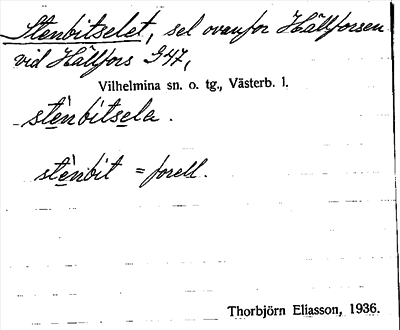 Stenbitselet, sel ovanför Hällforsen
vid Hällfors G47,
Vilhelmina sn. o. tg., Västerb. l.
stènbitsela.
stènbit = forell.
Thorbjörn Eliasson, 1936.